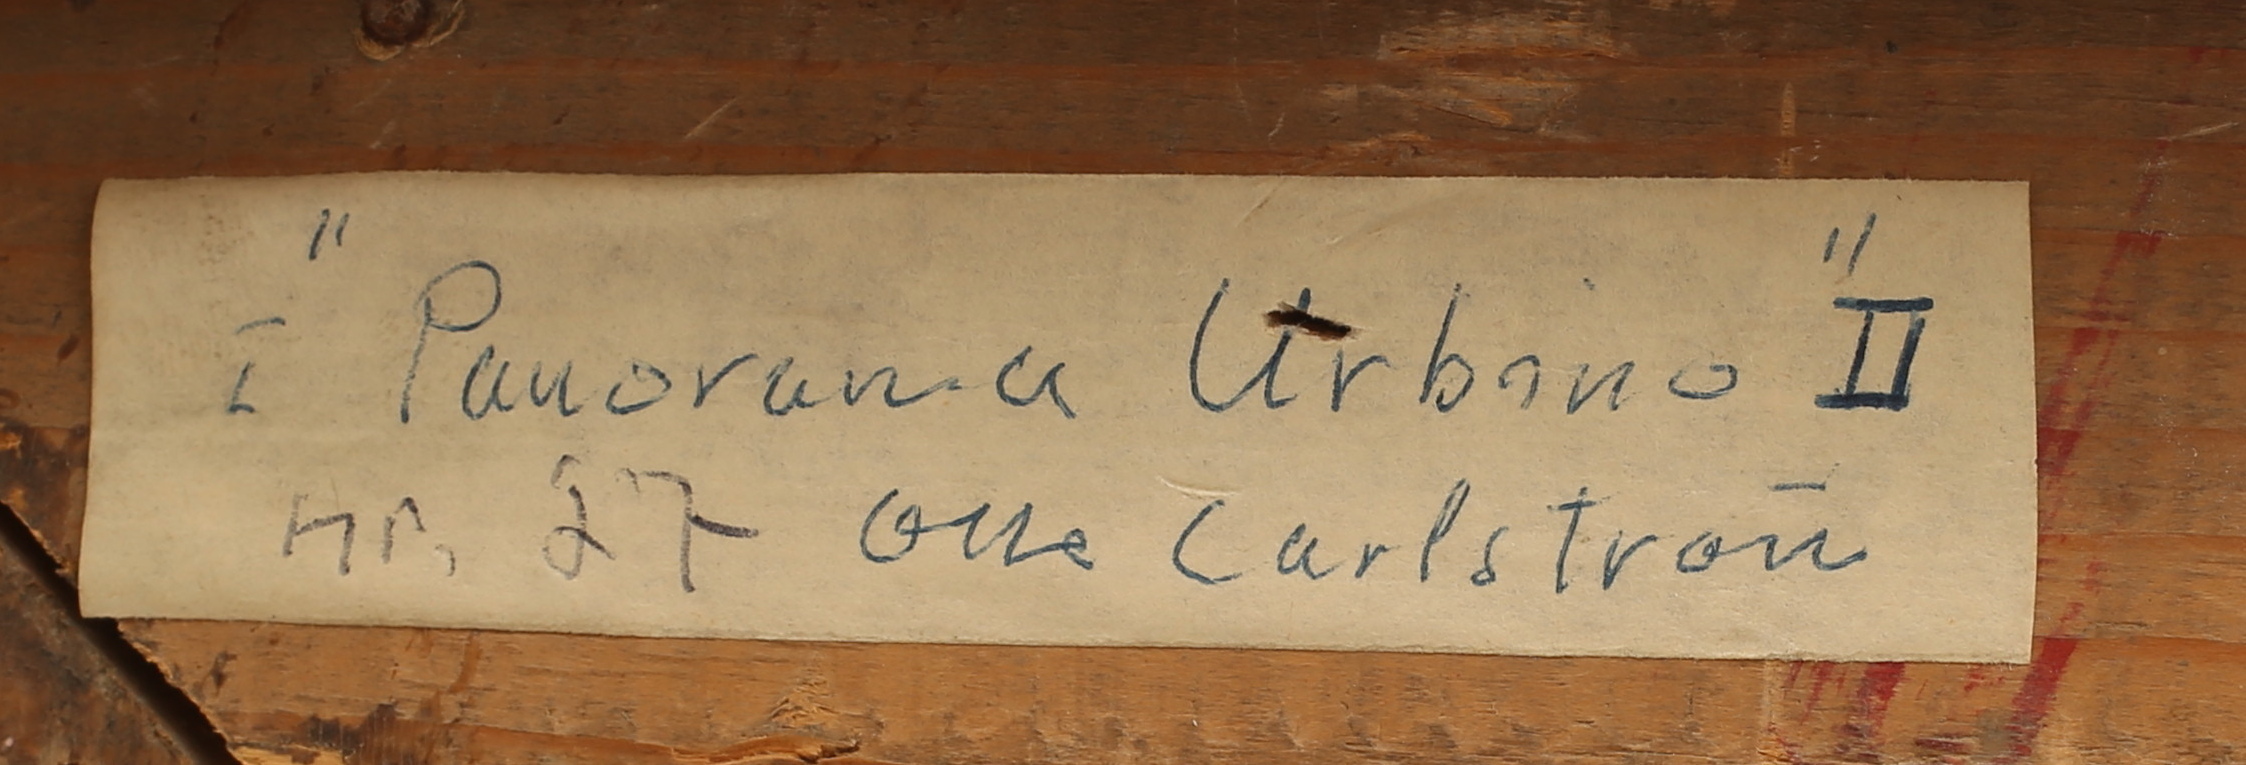 I "Panorama Urbino" II
nr. 27 Olle Carlström